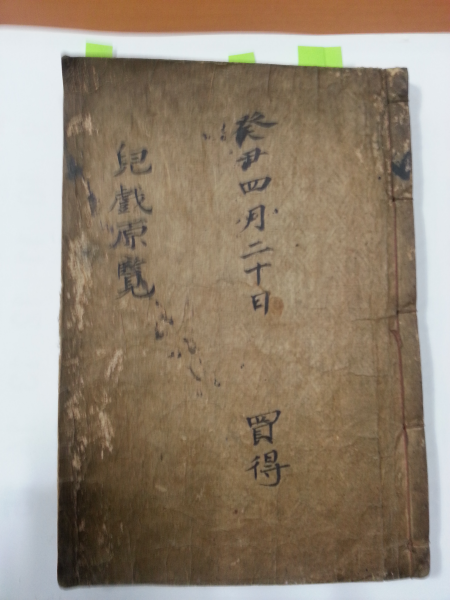 癸丑四月二十日 買得
兒戱原覽